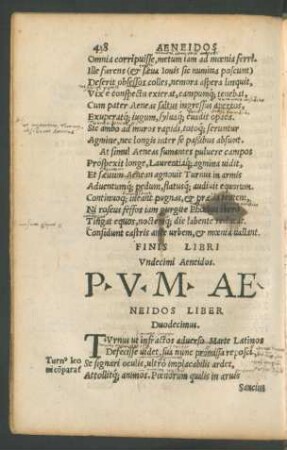 458 AENEIDOS
Omnia corripuisse, metum iam ad mœnia ferri.
Ille furens (& sæua Iouis sic numina poscunt)
Deserit obsessos colles, nemora aspera linquit.
Vix è conspectu exierat, campumq; tenebat,
Cum pater Aeneas saltus ingressus apertos,
Exuperatq; iugum, syluaq; euadit opaca.
Sic ambo ad muros rapidi, totoq; feruntur
Agmine, nec longis inter se passibus absunt.
At simul Aeneas fumantes puluere campos
Prospexit longe, Laurentiaq; agmina uidit,
Et sæuum Aenean agnouit Turnus in armis
Aduentumq; pedum, flatusq; audiuit equorum.
Continuoq; ineant pugnas, & prælia tentent,
Ni roseus fessos iam gurgite Phœbus Ibero
Tingat equos, noctemq; die labente reducat.
Considunt castris ante urbem, & mœnia uallant.
FINIS LIBRI
Vndecimi Aeneidos.
P. V. M. AE
NEIDOS LIBER
Duodecimus.
TVrnus ut infractos aduerso Marte Latinos
Defecisse uidet, sua nunc promissa reposci,
Turnº leo
Se signari oculis, ultro implacabilis ardet,
ni cōparat
Attollitq; animos. Pœnorum qualis in aruis
Saucius